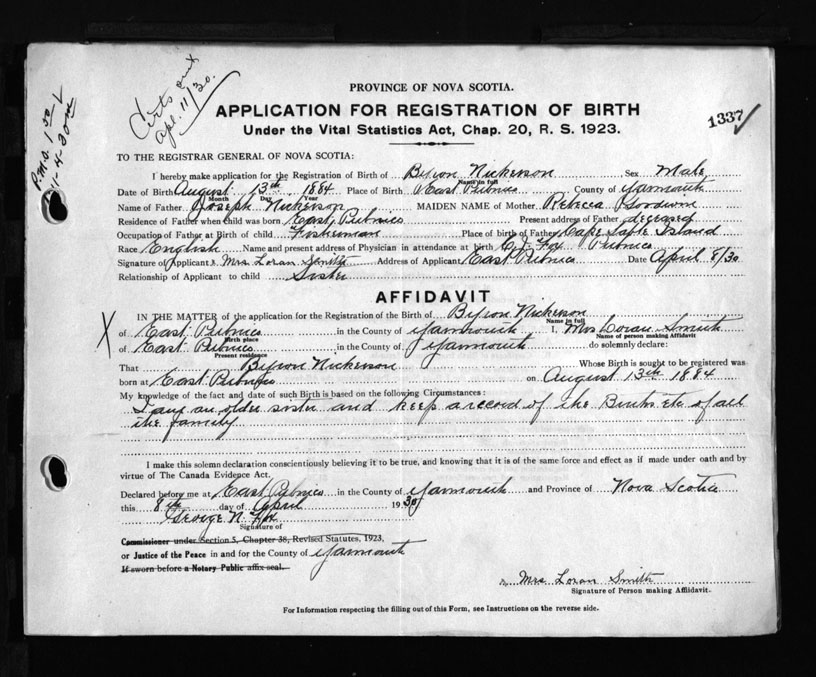 Certs out
apl. 11/30.
P.M.O. 1.00
11-4-30
PROVINCE OF NOVA SCOTIA.
APPLICATION FOR REGISTRATION OF BIRTH
1337
Under the Vital Statistics Act, Chap. 20, R. S. 1923.
TO THE REGISTRAR GENERAL OF NOVA SCOTIA:
I hereby make application for the Registration of Birth of Byron Nickerson Sex Male
Name in full
Date of Birth August 13th 1884 Place of Birth East Pubnico County of Yarmouth
Month Day Year
Name of Father Joseph Nickerson MAIDEN NAME of Mother Rebecca Goodwin
Residence of Father when child was born East Pubnico Present address of Father deceased
Occupation of Father at Birth of child Fisherman Place of birth of Father Cape Sable Island
Race English Name and present address of Physician in attendance at birth C. J. Fox Pubnico
Signature of Applicant Mrs Loran Smith Address of Applicant East Pubnico Date April 8/30
Relationship of Applicant to child Sister
AFFIDAVIT
IN THE MATTER of the application for the Registration of the Birth of Byron Nickerson
Name in full
X
of East Pubnico in the County of Yarmouth I, Mrs Loran Smith
Birth place Name of person making Affidavit
of East Pubnico in the County of, Yarmouth do solemnly declare:
Present residence
That Byron Nickerson Whose Birth is sought to be registered was
born at East Pubnico on August 13th 1884
My knowledge of the fact and date of such Birth is based on the following Circumstances:
I am an older sister and keep a record of the Births etc of all
the family
I make this solemn declaration conscientiously believing it to be true, and knowing that it is of the same force and effect as if made under oath and by
virtue of The Canada Evidence Act.
Declared before me at East Pubnico in the County of Yarmouth and Province of Nova Scotia
this 8th day of April 1930
George N. Fox
Signature of
Commissioner under Section 5, Chapter 38, Revised Statutes, 1923,
or Justice of the Peace in and for the County of Yarmouth
If sworn before a Notary Public affix seal.
Mrs. Loran Smith
Signature of Person making Affidavit.
For Information respecting the filling out of this Form, see Instructions on the reverse side.